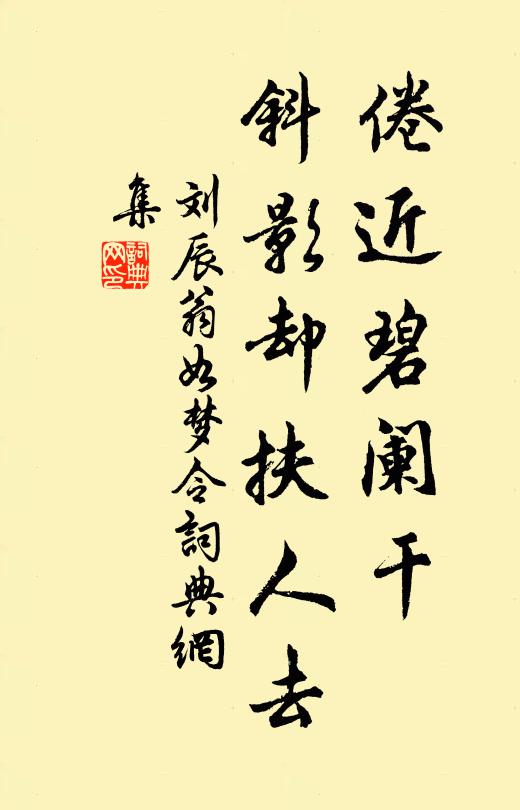 倦近碧阑干
斜影却扶人去
刘辰翁如梦令詞典網
集
詞典網印